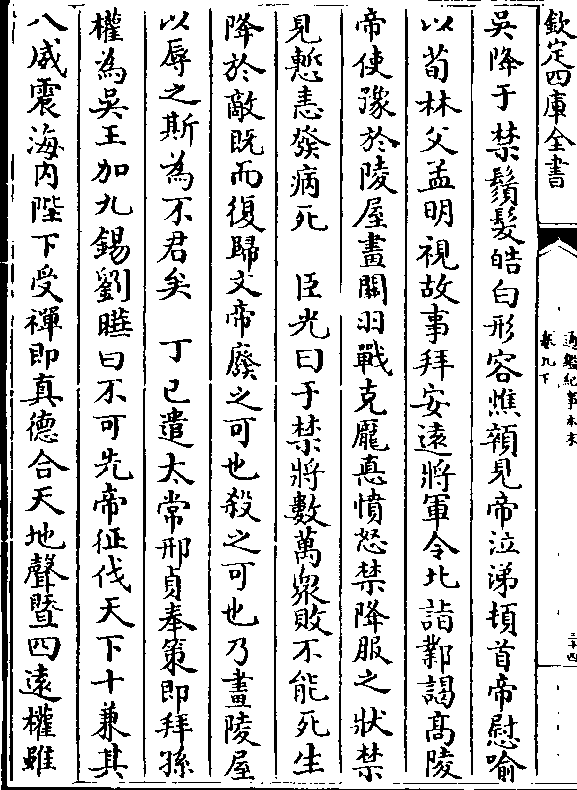 欽定四庫全書
通鑑紀事本末
卷九下
三十四
吳降于禁鬚髮皓白形容憔顇見帝泣涕頓首帝慰喻
以荀林父孟明視故事拜安遠將軍令北詣鄴謁髙陵
帝使豫於陵屋畫關羽戰克龎悳憤怒禁降服之狀禁
見慙恚發病死　臣光曰于禁將數萬衆敗不能死生
降於敵既而復歸文帝廢之可也殺之可也乃畫陵屋
以辱之斯為不君矣　丁巳遣太常邢貞奉策即拜孫
權為吳王加九錫劉曄曰不可先帝征伐天下十兼其
八威震海内陛下受禪即真德合天地聲暨四遠權雖